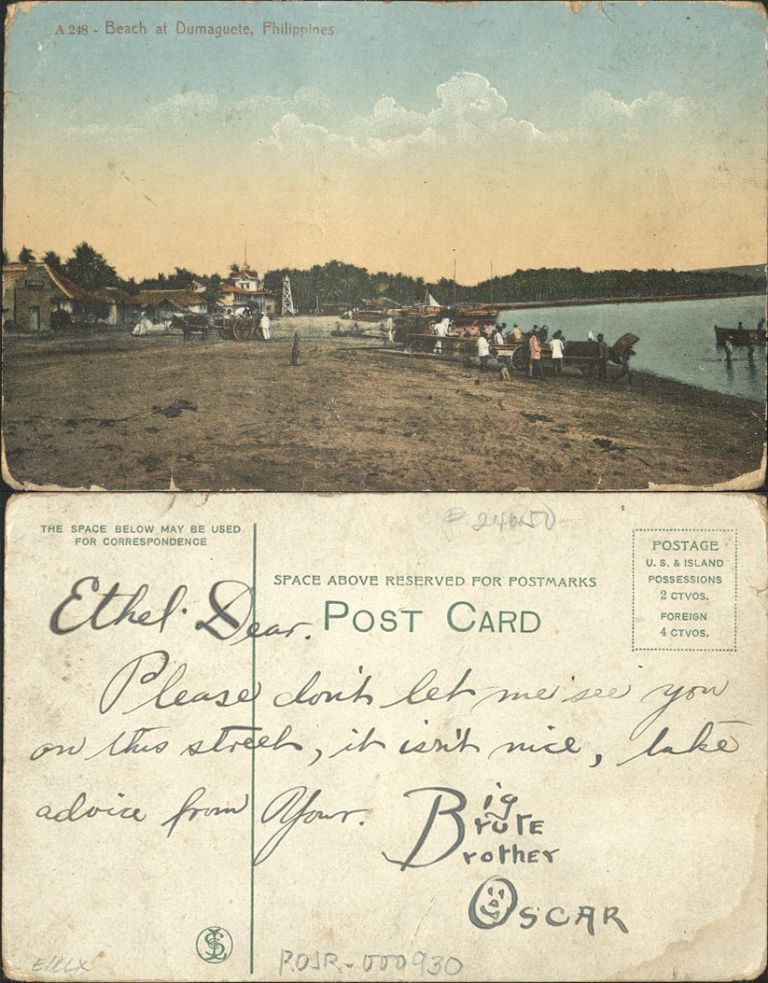 A 248 - Beach at Dumaguete, Philippines
THE SPACE BELOW MAY BE USED
FOR CORRESPONDENCE
P 24650
SPACE ABOVE RESERVED FOR POSTMARKS
POST CARD
POSTAGE
U. S. & ISLAND
POSSESSIONS
2 CTVOS.
FOREIGN
4 CTVOS.
Ethel Dear.
Please don't let me see you
on this street, it isn't nice, take
advice from Your.
Big
Brute
Brother
OSCAR
ROJR-000930